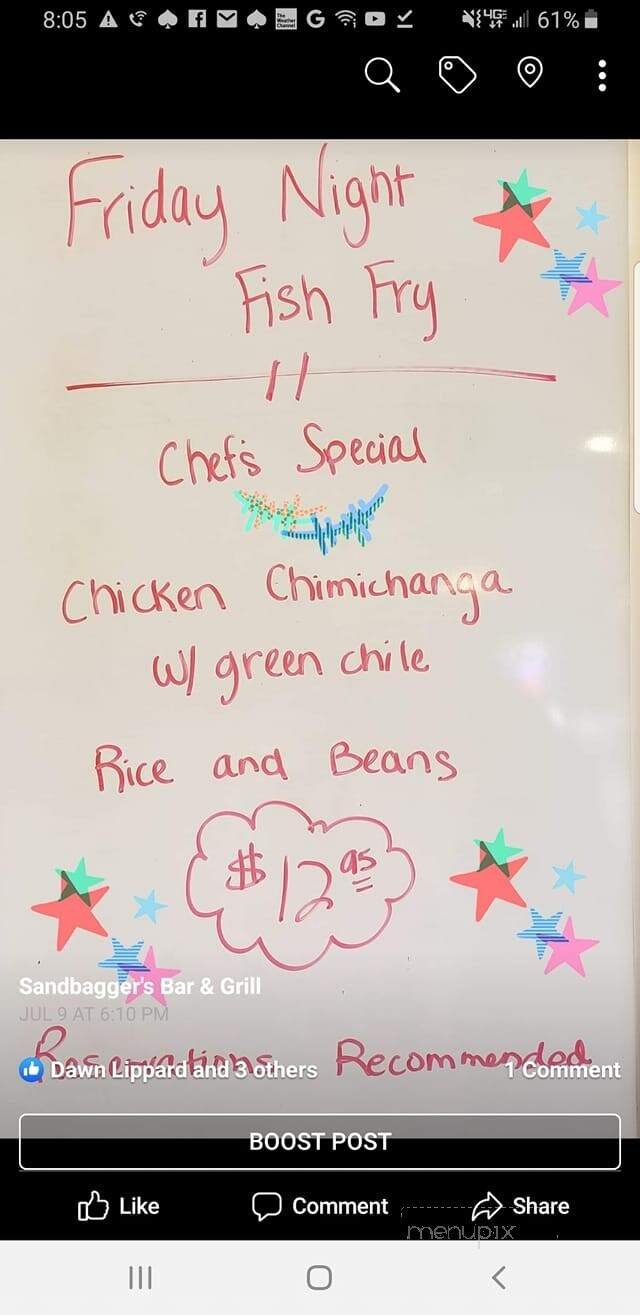 8:05
The Weather Channel
G
4GE
61%
Friday Night
Fish Fry
Chef's Special
Chicken Chimichanga
w/ green chile
Rice and Beans
$12 95
Sandbagger's Bar & Grill
JUL 9 AT 6:10 PM
Reservations Recommended
Dawn Lippard and 3 others
1 Comment
BOOST POST
Like
Comment
Share
menupix